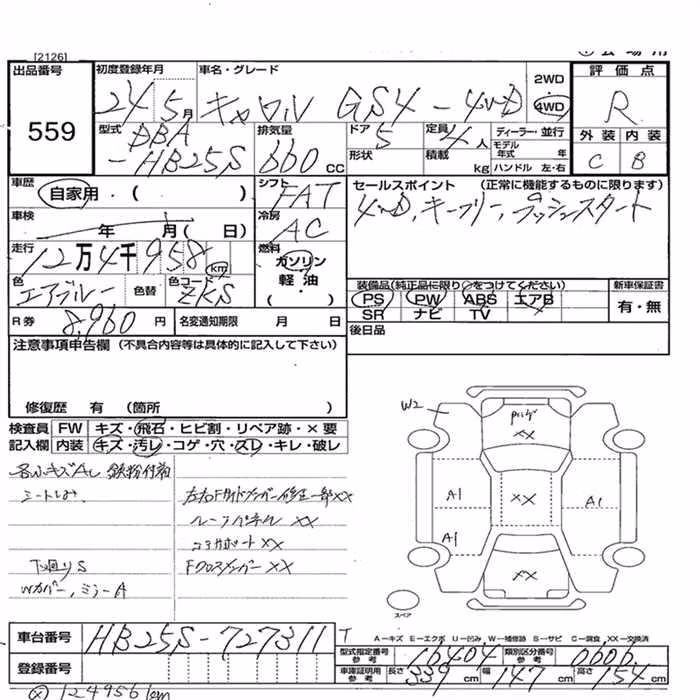 [2126]
出品番号 初度登録年月 車名・グレード 2WD 評価点
559 24年5月 キャロル GS4-4WD 4WD R
型式 DBA-HB25S 排気量 660 cc ドア 5 定員 4人 ディーラー・並行 外装 内装
形状 積載 kg モデル年式 年 ハンドル 左・右 C B
車歴 自家用・( ) シフト FAT セールスポイント (正常に機能するものに限ります)
車検 年 月( 日) 冷房 AC 4WD、キーフリー、プッシュスタート
走行 12万4千958 km 燃料 ガソリン 軽油
装備品(純正品に限り○をつけてください) 新車保証書
色 エアブルー 色替 色コード ZKS PS PW ABS エアB 有・無
R券 8,960円 名変通知期限 月 日 SR ナビ TV
注意事項申告欄 (不具合内容等は具体的に記入して下さい) 後日品
修復歴 有 (箇所 )
検査員 FW キズ・飛石・ヒビ割・リペア跡・×要
記入欄 内装 キズ・汚レ・コゲ・穴・スレ・キレ・破レ
W2
XX
A1 XX A1
A1
XX
スペア
各ふキズAし 鉄粉付着
シートしみ
左右Fサイドメンバー修正一部XX
ルーフパネルXX
コアサポートXX
下廻りS FクロスメンバーXX
Wカバー、ミラーA
A-キズ E-エクボ U-凹み W-補修跡 S-サビ C-腐食 XX-交換済
車台番号 HB25S-727311 T 型式指定番号 参考 16404 類別区分番号 参考 0606
登録番号 車庫証明用 参考 長さ 339 cm 幅 147 cm 高さ 154 cm
124956km